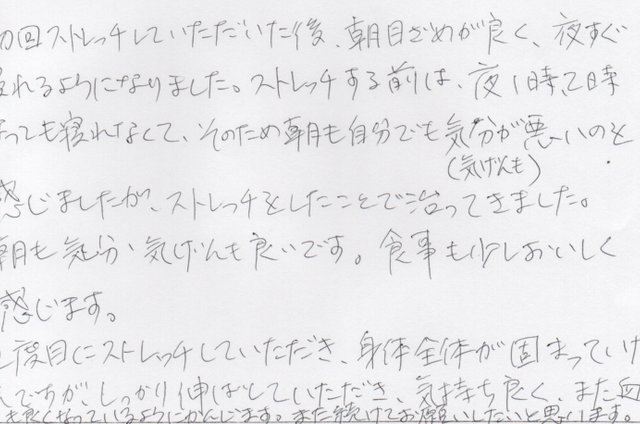 初回ストレッチしていただいた後、朝目ざめが良く、夜すぐ
寝れるようになりました。ストレッチする前は、夜1時、2時
なっても寝れなくて、そのため朝も自分でも気分が悪いのを
(気げんも)
感じましたが、ストレッチをしたことで治ってきました。
朝も気分、気げんも良いです。食事も少しおいしく
感じます。
2度目にストレッチしていただき、身体全体が固まっていた
んですが、しっかり伸ばしていただき、気持ち良く、また血
も良くなっているようにかんじます。また続けてお願いしたいと思います。